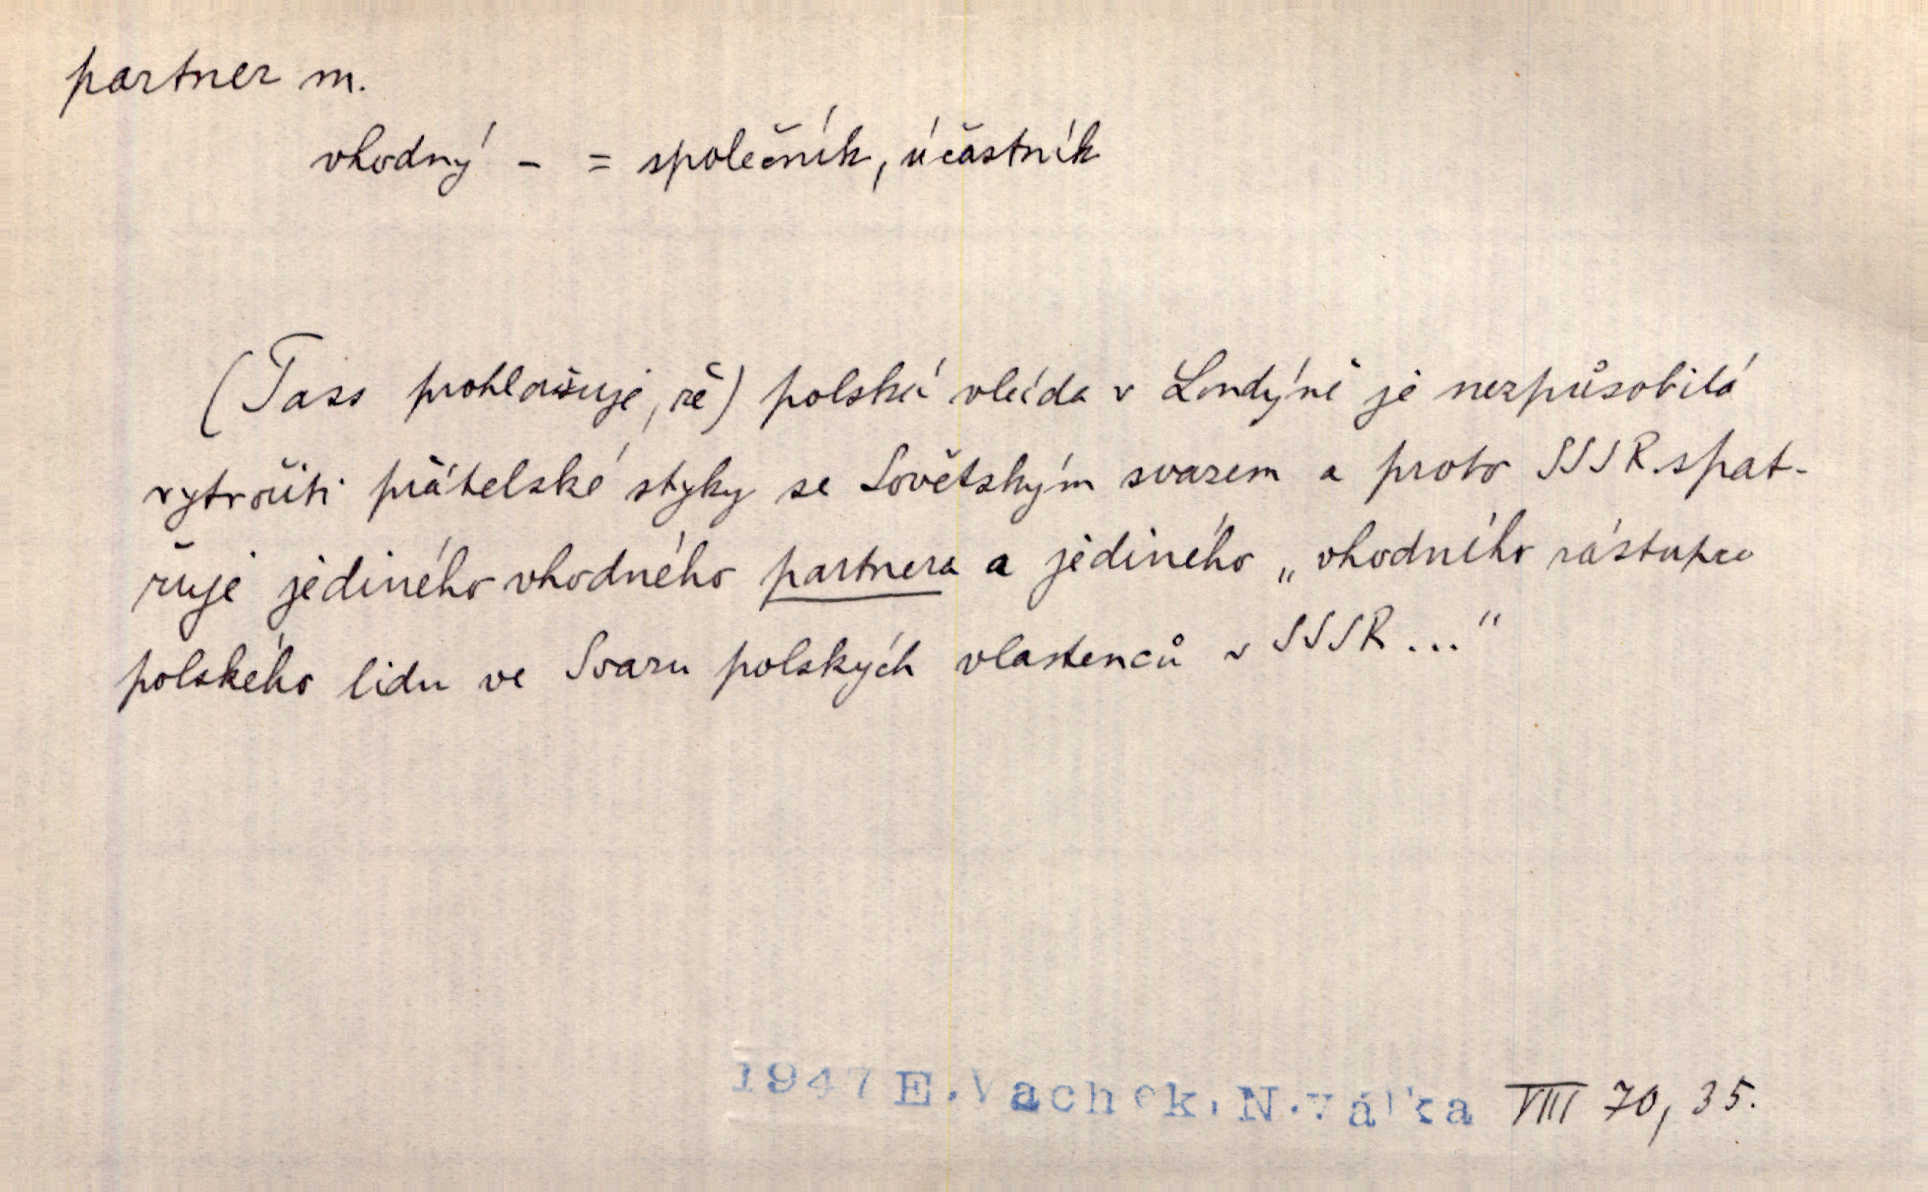 partner m.
vhodný - = společník, účastník
(Tass prohlašuje, že) polská vláda v Londýně je nezpůsobilá
vytvořiti přátelské styky se Sovětským svazem a proto SSSR spat-
řuje jediného vhodného partnera a jediného „vhodného zástupce
polského lidu ve Svazu polských vlastenců v SSSR..."
1947 E. Vachek, N. válka VIII 70, 35.